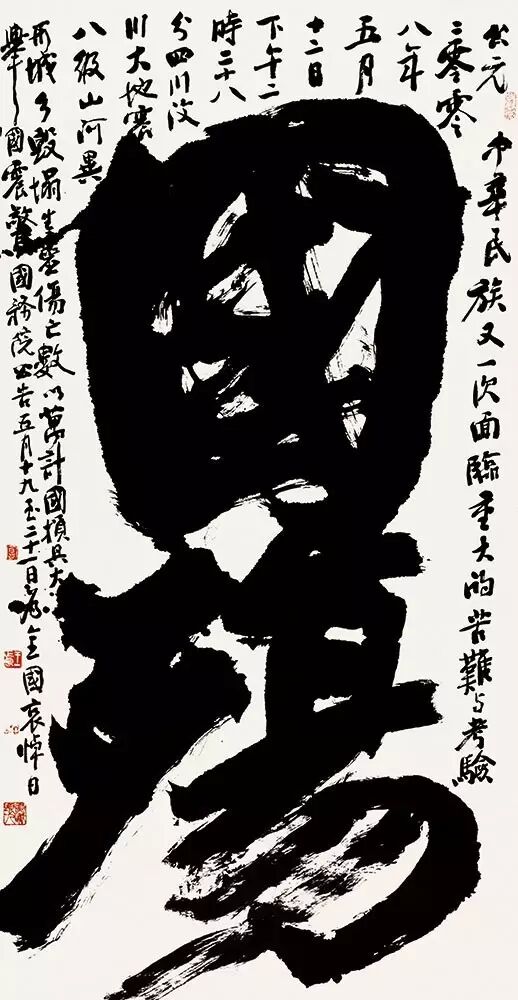 國殤
公元
二零零
八年
五月
十二日
下午二
時二十八
分四川汶
川大地震
八級山河異
形城乡毀塌生靈傷亡數以萬計國損大
舉國震驚國務院公告五月十九至二十一日為全國哀悼日
中華民族又一次面臨重大的苦難与考驗